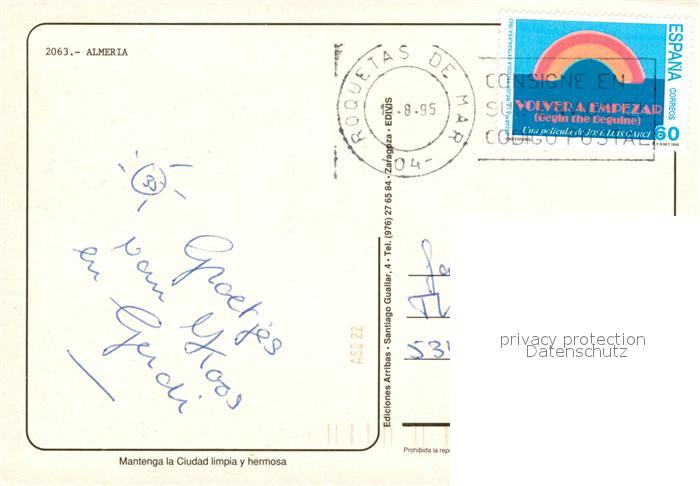 2063.- ALMERIA
ROQUETAS DE MAR
8-95
04-
CONSIGNE EN
CODIGO POSTAL
ESPAÑA
CORREOS
60
VOLVER A EMPEZAR
(Begin the Beguine)
Una película de JOSE LUIS GARCI
35
Groetjes
van Koos
en Gerdi
Ediciones Arribas - Santiago Guallar, 4 - Tel. (976) 27 65 84 - Zaragoza - EDIVIS
ASD 22
53
privacy protection
Datenschutz
Prohibida la rep
Mantenga la Ciudad limpia y hermosa